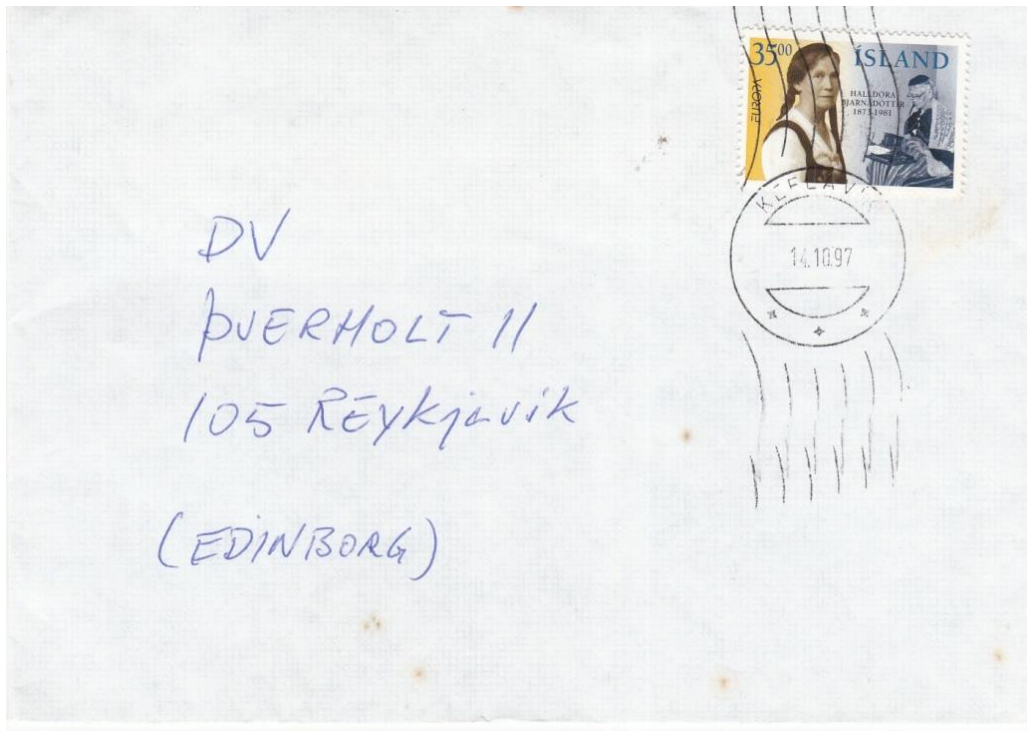 35.00
ÍSLAND
EUROPA
HALLDÓRA
BJARNADÓTTIR
1873-1981
KEFLAVÍK
14.10.97
DV
ÞVERHOLT 11
105 REykjavik
(EDiNBORG)